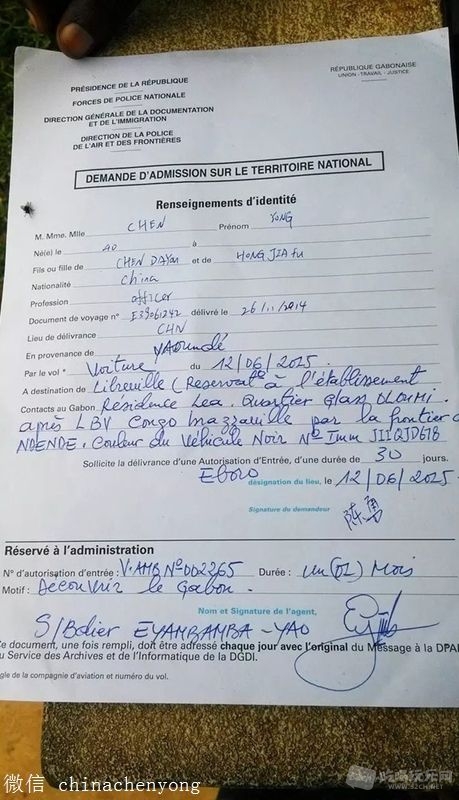 PRÉSIDENCE DE LA RÉPUBLIQUE
RÉPUBLIQUE GABONAISE
UNION - TRAVAIL - JUSTICE
FORCES DE POLICE NATIONALE
DIRECTION GÉNÉRALE DE LA DOCUMENTATION
ET DE L'IMMIGRATION
DIRECTION DE LA POLICE
DE L'AIR ET DES FRONTIÈRES
DEMANDE D'ADMISSION SUR LE TERRITOIRE NATIONAL
Renseignements d'identité
M. Mme. Mlle CHEN Prénom YONG
Né(e) le 40 à
Fils ou fille de CHEN DAYou et de HONG JIA fu
Nationalité China
Profession officer
Document de voyage n° E39061242 délivré le 26/11/2014
Lieu de délivrance CHN
En provenance de YAOUNDÉ
Par le vol * Voiture du 12/06/2015.
A destination de Libreville (Reservat° à l'établissement
Contacts au Gabon Résidence Lea. Quartier Glass OLOUMI.
après LBV Congo Brazzaville par la frontier d
NDENDE. Couleur du Véhicule Noir N° Imm JIIQJD678
Sollicite la délivrance d'une Autorisation d'Entrée, d'une durée de 30 jours.
Eboro désignation du lieu, le 12/06/2015.
Signature du demandeur
陈勇
Réservé à l'administration
N° d'autorisation d'entrée : V.AMB N°002265 Durée : un (01) Mois
Motif : Découvrir le Gabon.
Nom et Signature de l'agent,
S/Bdier EYAMBAMBA-YAO
Ce document, une fois rempli, doit être adressé chaque jour avec l'original du Message à la DPA
u Service des Archives et de l'Informatique de la DGDI.
gle de la compagnie d'aviation et numéro du vol.
微信 chinachenyong